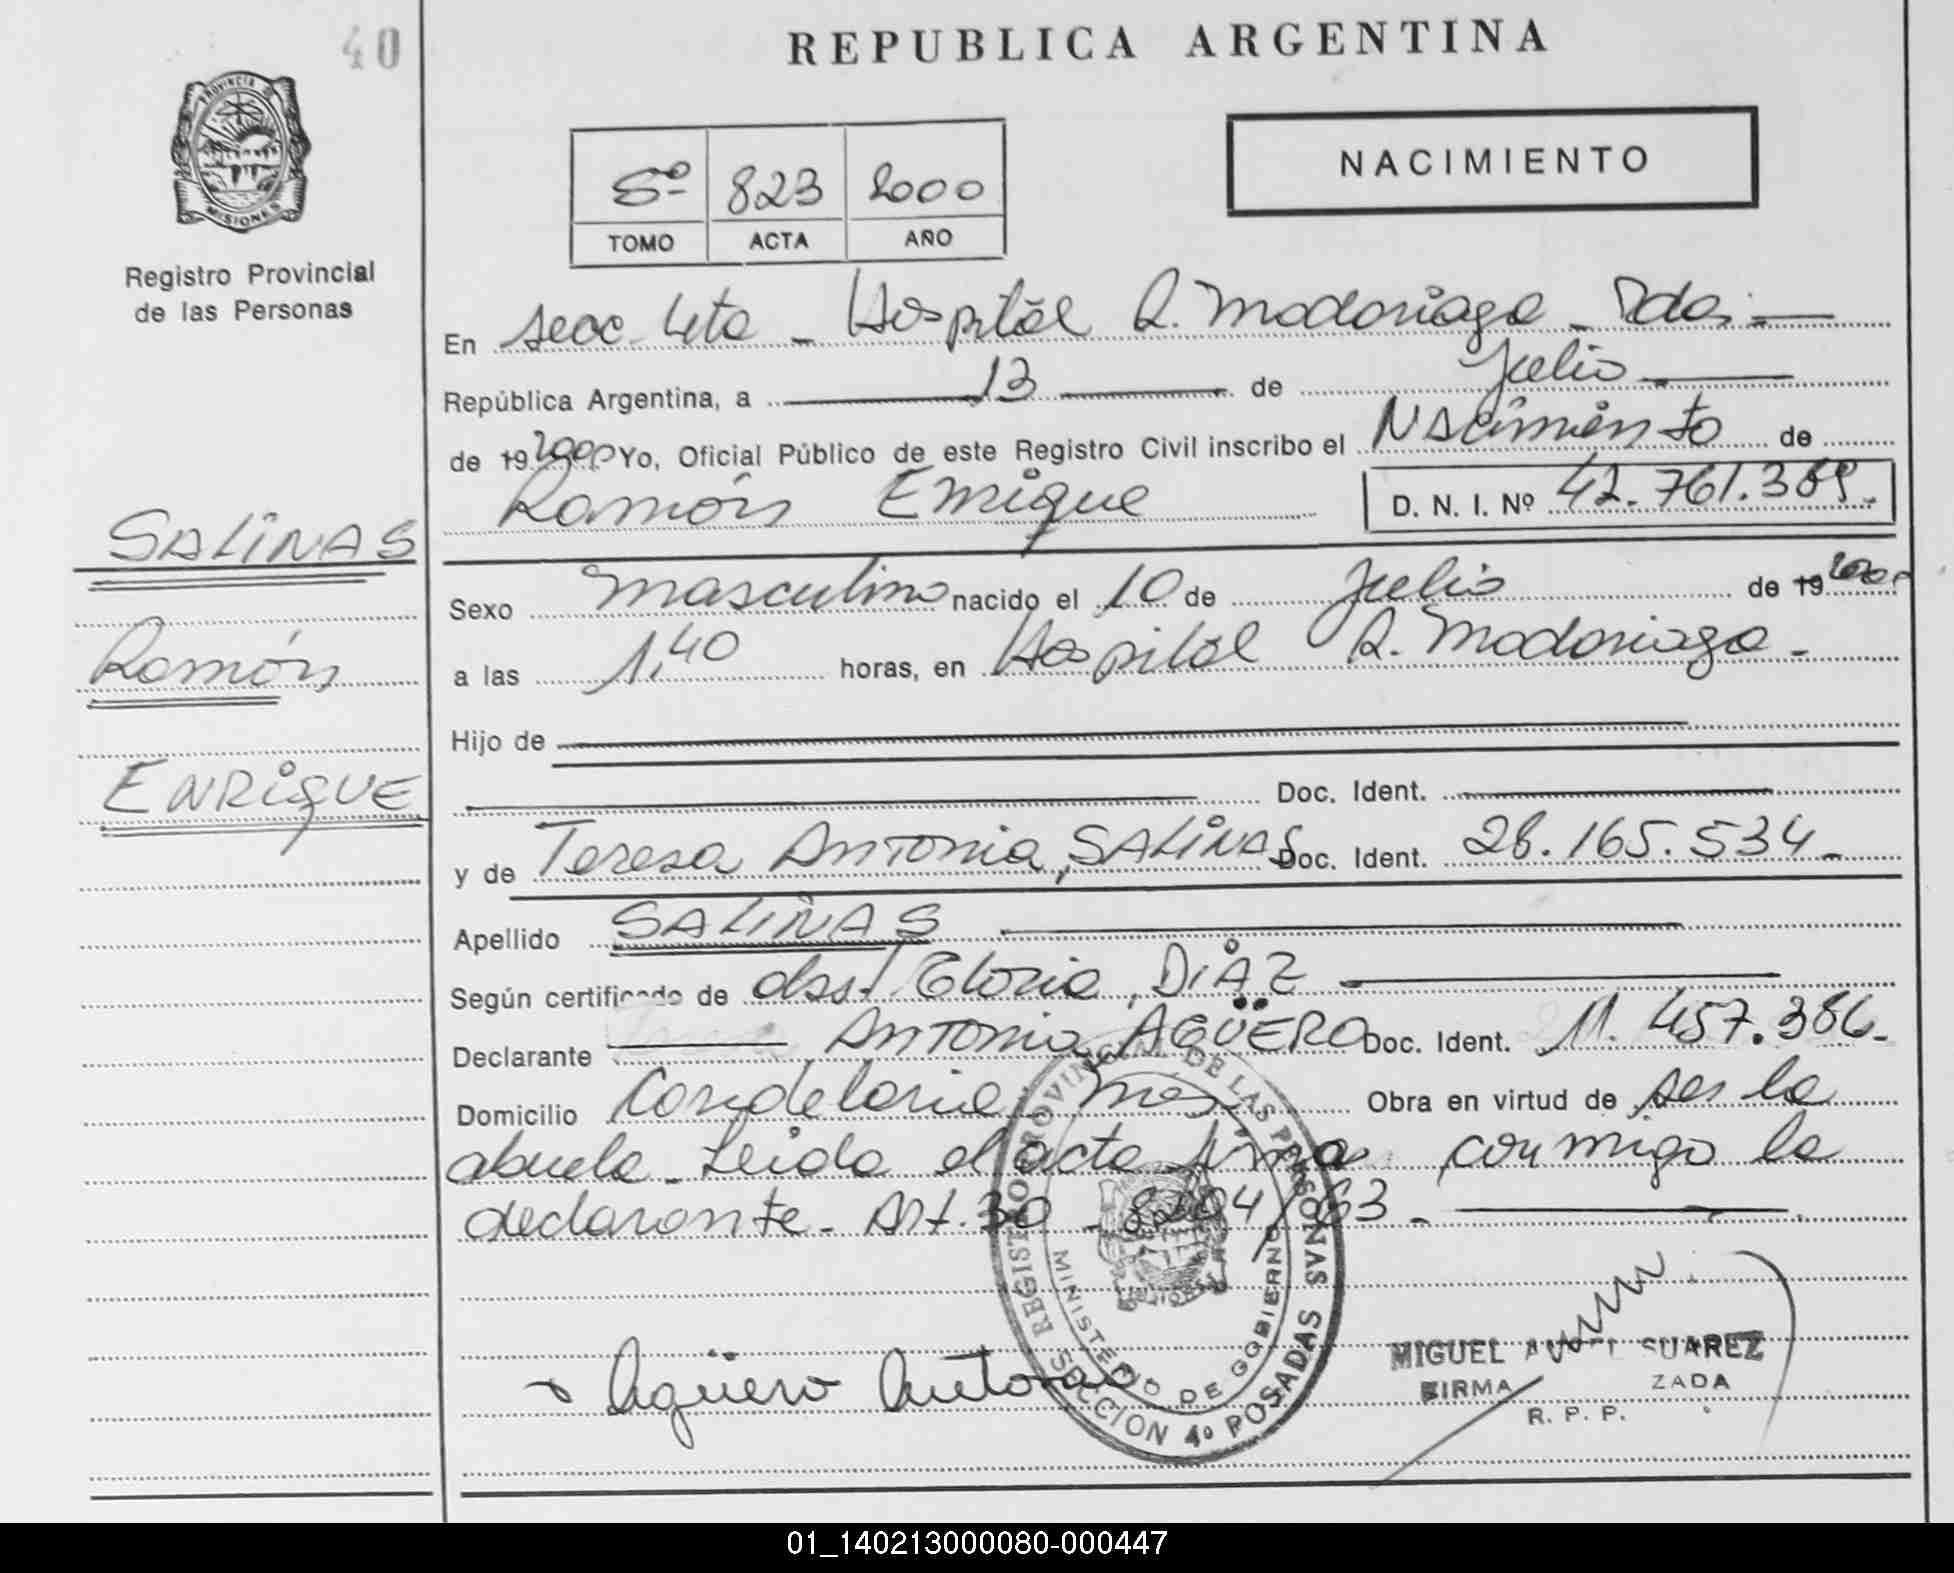 40
REPUBLICA ARGENTINA
PROVINCIA DE MISIONES
Registro Provincial
de las Personas
5º 823 2000
TOMO ACTA AÑO
NACIMIENTO
En secc 4ta - Hospital R. Madariaga - Pdas. -
República Argentina, a 13 de Julio
de 19 2000 Yo, Oficial Público de este Registro Civil inscribo el Nacimiento de
Ramón Enrique D. N. I. Nº 42.761.369.
SALINAS
Ramón
ENRIQUE
Sexo masculino nacido el 10 de Julio de 19 2000
a las 1,40 horas, en Hospital R. Madariaga -
Hijo de
Doc. Ident.
y de Teresa Antonia, SALINAS Doc. Ident. 28.165.534-
Apellido SALINAS
Según certificado de obst. Gloria, DIAZ
Declarante Antonia, AGÜERO Doc. Ident. 11.457.386-
Domicilio Candelaria Mnes Obra en virtud de ser la
abuela - Leida el acta firma conmigo la
declarante - Art. 30 - 8204/63 -
REGISTRO PROVINCIAL DE LAS PERSONAS
MINISTERIO DE GOBIERNO
SECCION 4º POSADAS
Agüero Antonia
MIGUEL ANGEL SUAREZ
FIRMA ZADA
R. P. P.
01_140213000080-000447